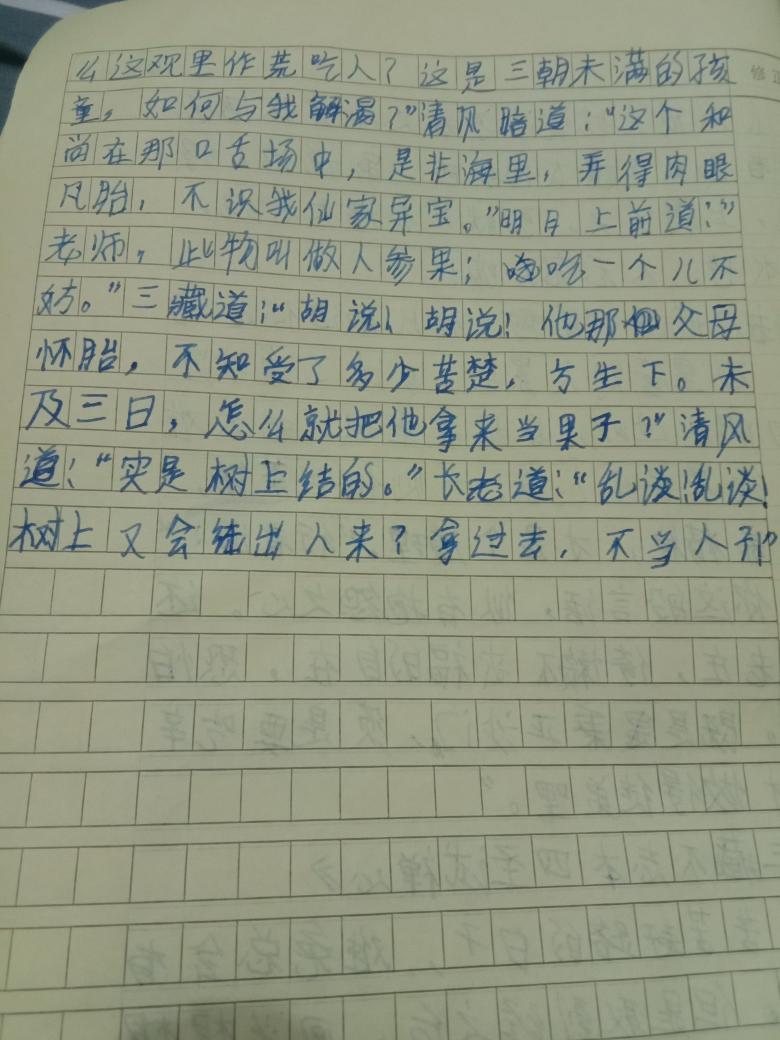 么这观里作荒吃人？这是三朝未满的孩
童，如何与我解渴？”清风暗道：“这个和
尚在那口舌场中，是非海里，弄得肉眼
凡胎，不识我仙家异宝。”明月上前道：“
老师，此物叫做人参果；吃一个儿不
妨。”三藏道：“胡说！胡说！他那父母
怀胎，不知受了多少苦楚，方生下。未
及三日，怎么就把他拿来当果子？”清风
道：“实是树上结的。”长老道：“乱谈！乱谈！
树上又会结出人来？拿过去，不当人子”